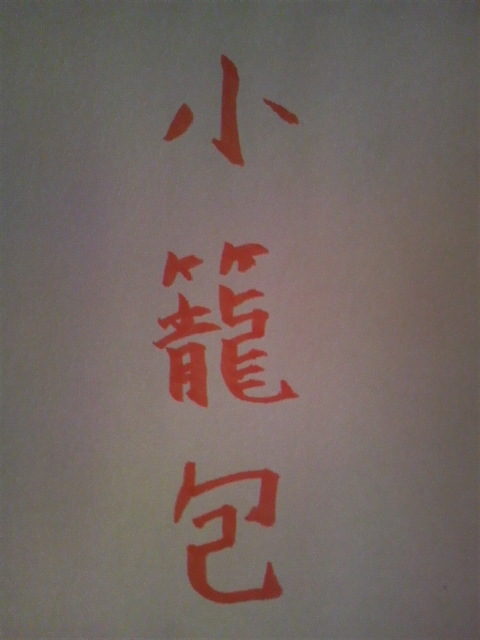 小籠包